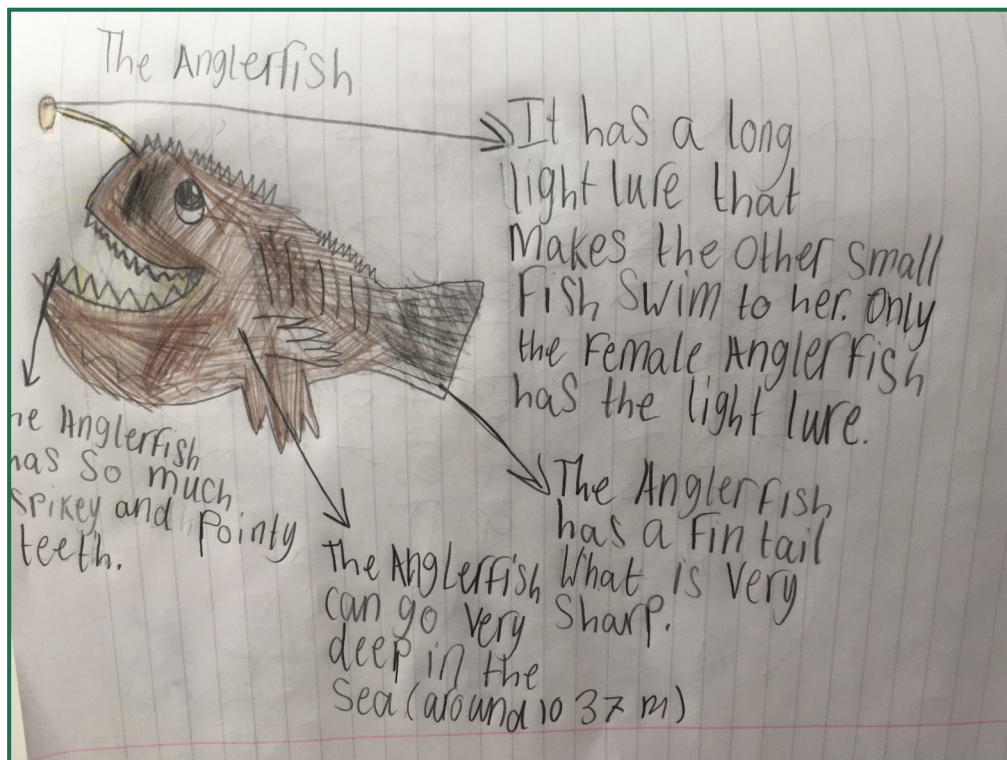 The Anglerfish
It has a long
light lure that
Makes the Other Small
Fish Swim to her. Only
the Female Anglerfish
has the light lure.
he Anglerfish
has So much
Spikey and Pointy
teeth.
The Anglerfish
can go Very
deep in the
Sea (around 10 37 m)
The Anglerfish
has a Fin tail
What is Very
Sharp.